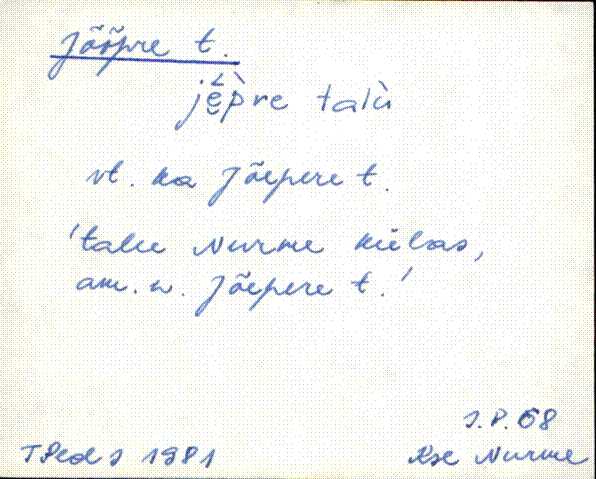 Jõõpre t.
jẹ̮̀p̀re talù
vt. ka Jõepere t.
'talu Nurme külas,
am. n. Jõepere t.'
J.P. 68
TPedI 1981 Kse Nurme